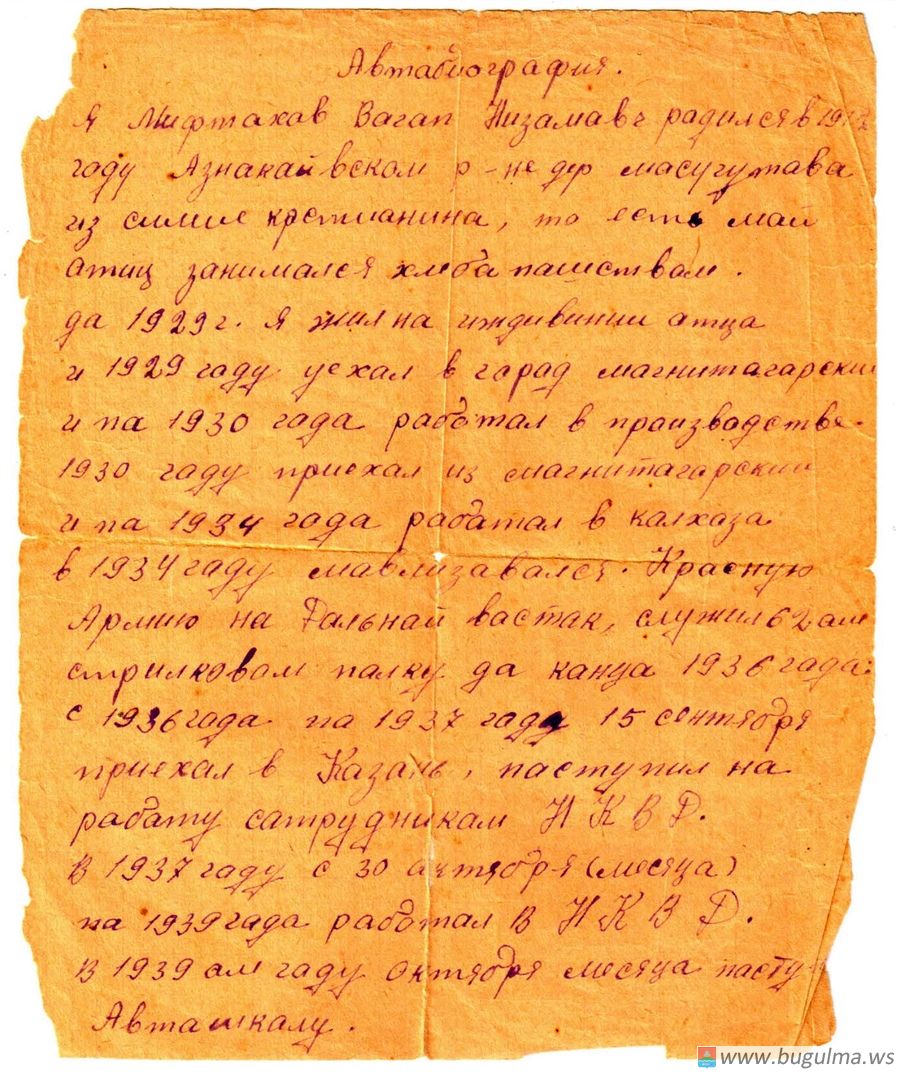 Автабиография.
Я Мифтахов Вагап Низамавч радился в 1912
году Азнакайвском р-не дер масугутава
из симие крстианина, то есть май
атиц занимался хлеба пашствам.
да 1929 г. я жил на иждивинии атца
и 1929 году уехал в гарад магнитагарский
и па 1930 года работал в праизводстве.
1930 году приехал из магнитагарский
и па 1934 года рабатал в калхаза
в 1934 году мавлизавался. Красную
Армию на Дальнай вастак, служил 62 ам
стрилковам палку да канца 1936 года:
с 1936 года па 1937 году 15 сентября
приехал в Казань, паступил на
рабату сатрудникам НКВД.
В 1937 году с 30 актября (месяца)
па 1939 года работал в НКВД.
В 1939 ам году октября месяца пасту
Авташкалу.
www.bugulma.ws